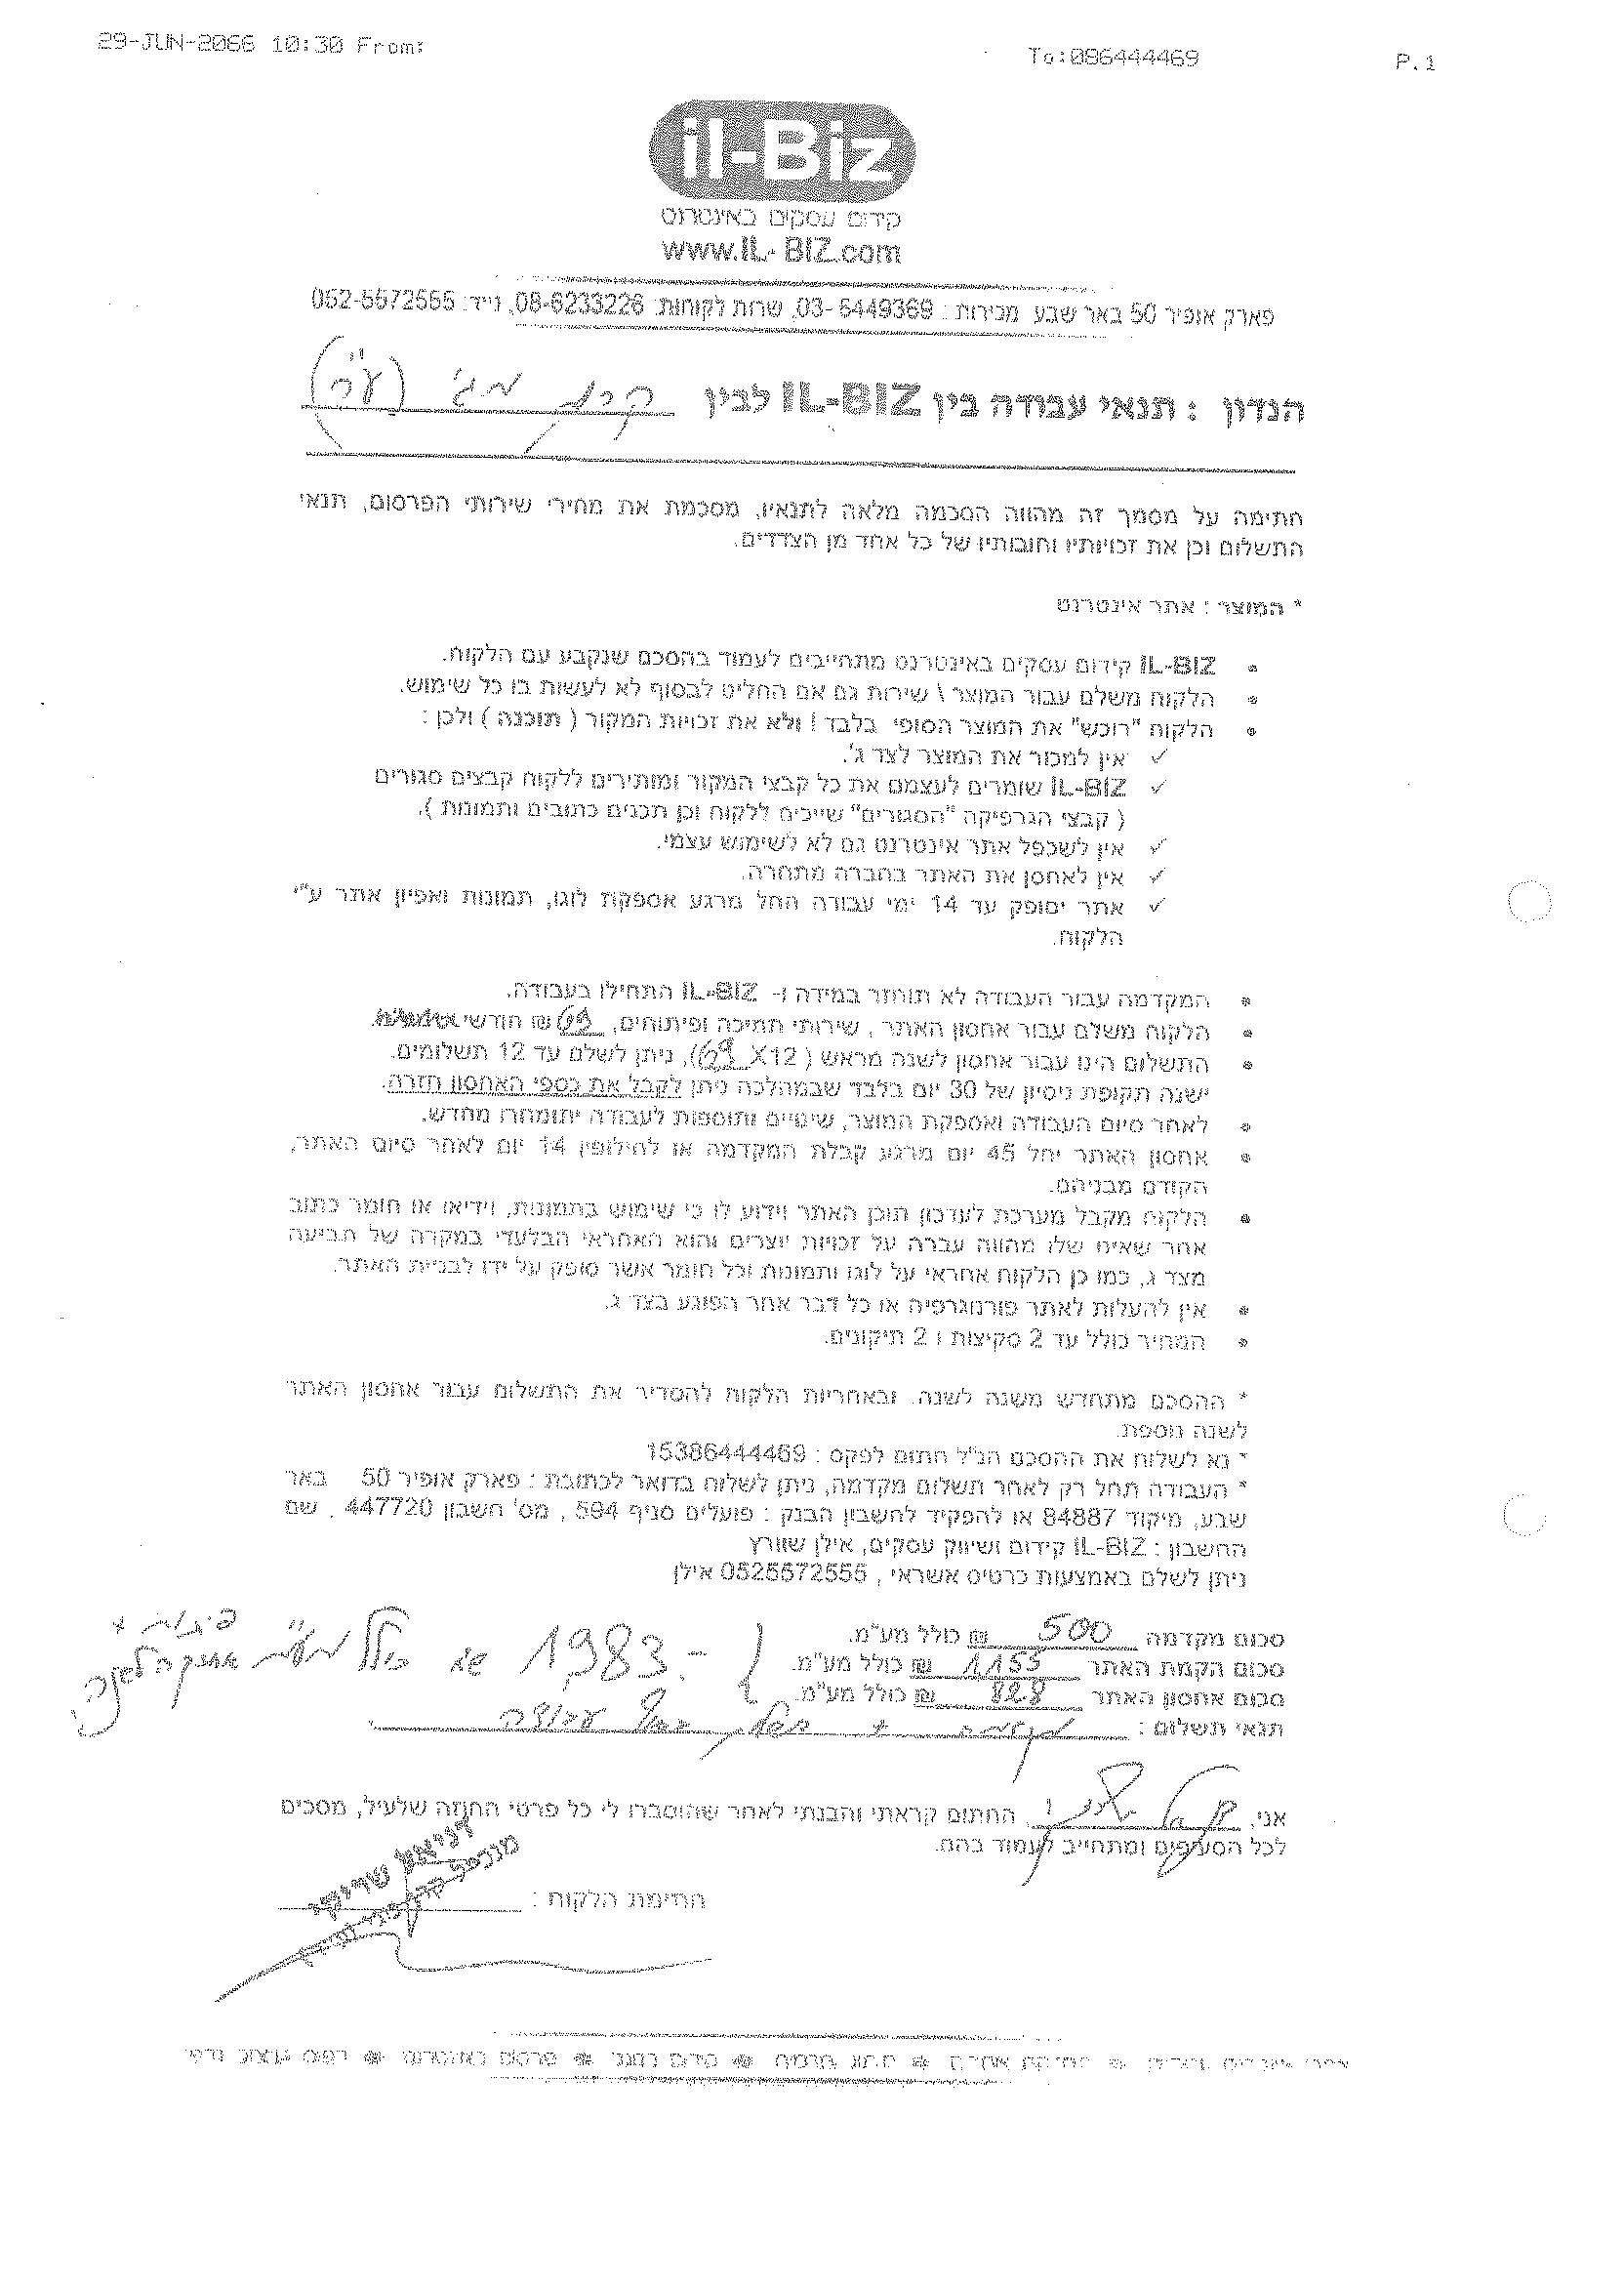 29-JUN-2066 10:30 From: To:086444469 P.1
il-Biz
קידום עסקים באינטרנט
www.IL-BIZ.com
פארק אופיר 50 באר שבע מכירות : 03-6449369, שרות לקוחות: 08-6233226, נייד: 052-5572555
הנדון : תנאי עבודה בין IL-BIZ לבין קרן מגי (ע"ר)
חתימה על מסמך זה מהווה הסכמה מלאה לתנאיו, מסכמת את מחירי שירותי הפרסום, תנאי
התשלום וכן את זכויותיו וחובותיו של כל אחד מן הצדדים.
* המוצר : אתר אינטרנט
• IL-BIZ קידום עסקים באינטרנט מתחייבים לעמוד בהסכם שנקבע עם הלקוח.
• הלקוח משלם עבור המוצר \ שירות גם אם החליט לבסוף לא לעשות בו כל שימוש.
• הלקוח "רוכש" את המוצר הסופי בלבד ! ולא את זכויות המקור ( תוכנה ) ולכן :
✓ אין למכור את המוצר לצד ג'.
✓ IL-BIZ שומרים לעצמם את כל קבצי המקור ומותירים ללקוח קבצים סגורים
( קבצי הגרפיקה "הסגורים" שייכים ללקוח וכן תכנים כתובים ותמונות ).
✓ אין לשכפל אתר אינטרנט גם לא לשימוש עצמי.
✓ אין לאחסן את האתר בחברה מתחרה.
✓ אתר יסופק עד 14 ימי עבודה החל מרגע אספקת לוגו, תמונות ואפיון אתר ע"י
הלקוח.
• המקדמה עבור העבודה לא תוחזר במידה ו- IL-BIZ התחילו בעבודה.
• הלקוח משלם עבור אחסון האתר , שירותי תמיכה ופיתוחים, 69 ₪ חודשי
• התשלום הינו עבור אחסון לשנה מראש ( 69 X12), ניתן לשלם עד 12 תשלומים.
ישנה תקופת ניסיון של 30 יום בלבד שבמהלכה ניתן לקבל את כספי האחסון חזרה.
• לאחר סיום העבודה ואספקת המוצר, שינויים ותוספות לעבודה יתומחרו מחדש.
• אחסון האתר יחל 45 יום מרגע קבלת המקדמה או לחילופין 14 יום לאחר סיום האתר,
הקודם מבניהם.
• הלקוח מקבל מערכת לעדכון תוכן האתר וידוע לו כי שימוש בתמונות, וידיאו או חומר כתוב
אחר שאינו שלו מהווה עברה על זכויות יוצרים והוא האחראי הבלעדי במקרה של תביעה
מצד ג, כמו כן הלקוח אחראי על לוגו ותמונות וכל חומר אשר סופק על ידו לבניית האתר.
• אין להעלות לאתר פורנוגרפיה או כל דבר אחר הפוגע בצד ג.
• המחיר כולל עד 2 סקיצות ו 2 תיקונים.
* ההסכם מתחדש משנה לשנה. ובאחריות הלקוח להסדיר את התשלום עבור אחסון האתר
לשנה נוספת.
* נא לשלוח את ההסכם הנ"ל חתום לפקס : 15386444469
* העבודה תחל רק לאחר תשלום מקדמה, ניתן לשלוח בדואר לכתובת : פארק אופיר 50 באר
שבע, מיקוד 84887 או להפקיד לחשבון הבנק : פועלים סניף 594 , מס' חשבון 447720 , שם
החשבון : IL-BIZ קידום ושיווק עסקים, אילן שוורץ
ניתן לשלם באמצעות כרטיס אשראי , 0525572555 אילן
סכום מקדמה 500 ₪ כולל מע"מ.
סכום הקמת האתר 1155 ₪ כולל מע"מ.
סכום אחסון האתר 828 ₪ כולל מע"מ.
1,983.- ש"ח כולל מע"מ
תנאי תשלום : מקדמה + עבודה
אני, החתום קראתי והבנתי לאחר שהוסברו לי כל פרטי החוזה שלעיל, מסכים
לכל הסעיפים ומתחייב לעמוד בהם.
חתימת הלקוח :
דניאל שריקי